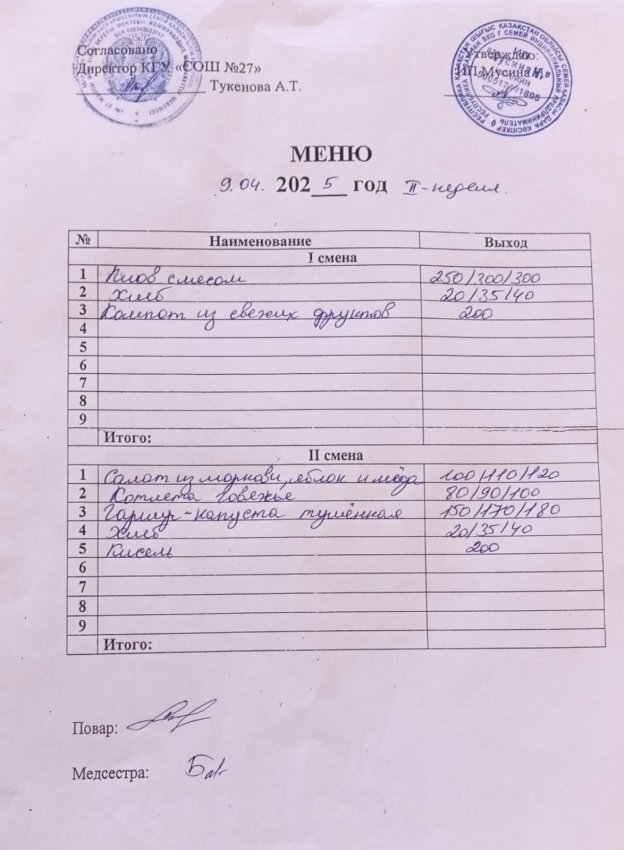 Согласовано
Директор КГУ «СОШ №27»
Тукенова А.Т.
Утверждаю:
ИП Мусина
МЕНЮ
9.04. 2025 год II-неделя.
№ Наименование Выход
I смена
1 Плов с мясом 250/300/300
2 Хлеб 20/35/40
3 Компот из свежих фруктов 200
4
5
6
7
8
9
Итого:
II смена
1 Салат из моркови, яблок и мёда 100/110/120
2 Котлета говежье 80/90/100
3 Гарнир-капуста тушённая 150/170/180
4 Хлеб 20/35/40
5 Кисель 200
6
7
8
9
Итого:
Повар:
Медсестра: